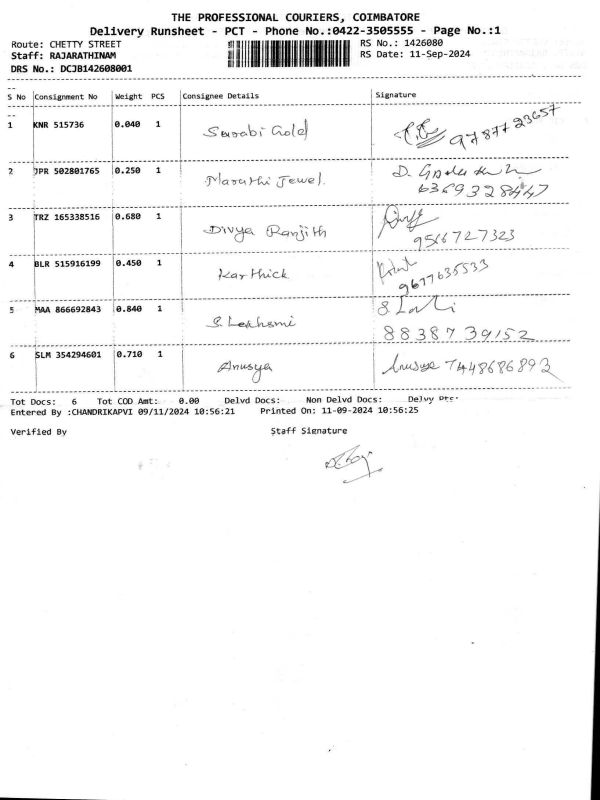 THE PROFESSIONAL COURIERS, COIMBATORE
Delivery Runsheet - PCT - Phone No.:0422-3505555 - Page No.:1
Route: CHETTY STREET RS No.: 1426080
Staff: RAJARATHINAM RS Date: 11-Sep-2024
DRS No.: DCJB142608001
S No Consignment No Weight PCS Consignee Details Signature
1 KNR 515736 0.040 1 Sarabi Gold 9787723657
2 JPR 502801765 0.250 1 Maruthi Jewel. D.
6369328447
3 TRZ 165338516 0.680 1 Divya Ranjith
9566727323
4 BLR 515916199 0.450 1 Karthick
9677635533
5 MAA 866692843 0.840 1 S. Lakhsmi S.
8838739152
6 SLM 354294601 0.710 1 Anusya Anusya 7448686893
Tot Docs: 6 Tot COD Amt: 0.00 Delvd Docs: Non Delvd Docs: Delvy Pts:
Entered By :CHANDRIKAPVI 09/11/2024 10:56:21 Printed On: 11-09-2024 10:56:25
Verified By Staff Signature